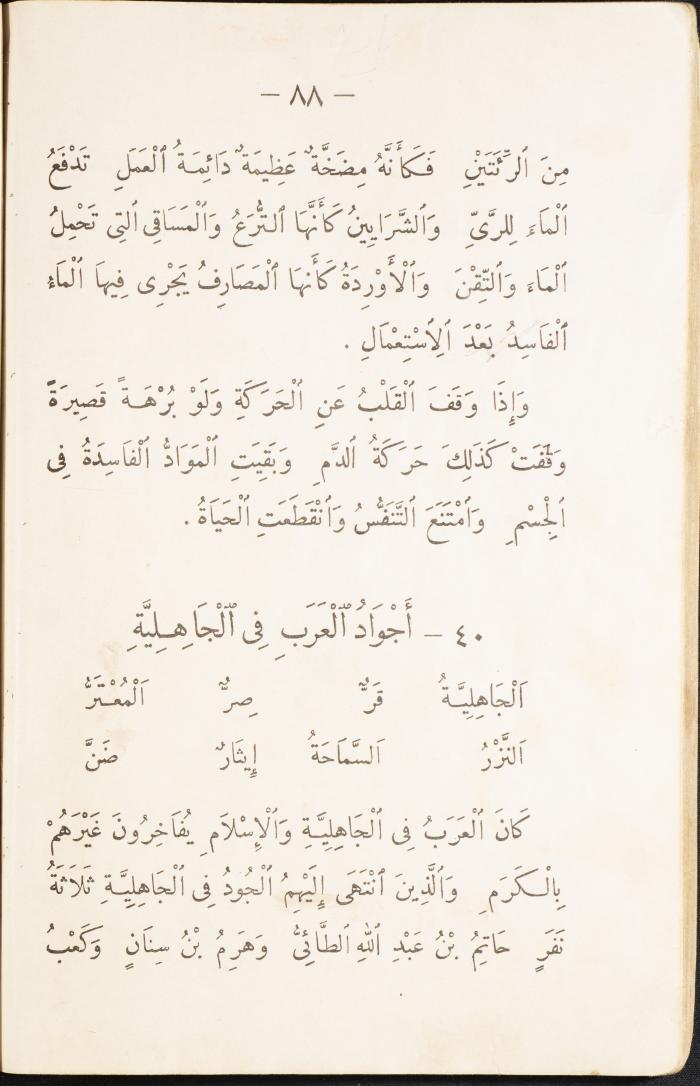 — ٨٨ —
مِنَ ٱلرِّئَتَيْنِ فَكَأَنَّهُ مِضَخَّةٌ عَظِيمَةٌ دَائِمَةُ ٱلْعَمَلِ تَدْفَعُ
ٱلْمَاءَ لِلرَّىِّ وَٱلشَّرَايِينُ كَأَنَّهَا ٱلتُّرَعُ وَٱلْمَسَاقِى ٱلَّتِى تَحْمِلُ
ٱلْمَاءَ وَٱلتِّقْنَ وَٱلْأَوْرِدَةُ كَأَنَّهَا ٱلْمَصَارِفُ يَجْرِى فِيهَا ٱلْمَاءُ
ٱلْفَاسِدُ بَعْدَ ٱلِٱسْتِعْمَالِ .
وَإِذَا وَقَفَ ٱلْقَلْبُ عَنِ ٱلْحَرَكَةِ وَلَوْ بُرْهَةً قَصِيرَةً
وَقَفَتْ كَذَلِكَ حَرَكَةُ ٱلدَّمِ وَبَقِيَتِ ٱلْمَوَادُّ ٱلْفَاسِدَةُ فِى
ٱلْجِسْمِ وَٱمْتَنَعَ ٱلتَّنَفُّسُ وَٱنْقَطَعَتِ ٱلْحَيَاةُ .
٤٠ — أَجْوَادُ ٱلْعَرَبِ فِى ٱلْجَاهِلِيَّةِ
اَلْجَاهِلِيَّةُ قَرٌّ صِرٌّ اَلْمُعْتَرُّ
اَلنَّزْرُ اَلسَّمَاحَةُ إِيثَارٌ ضَنَّ
كَانَ ٱلْعَرَبُ فِى ٱلْجَاهِلِيَّةِ وَٱلْإِسْلَامِ يُفَاخِرُونَ غَيْرَهُمْ
بِٱلْكَرَمِ وَٱلَّذِينَ ٱنْتَهَى إِلَيْهِمُ ٱلْجُودُ فِى ٱلْجَاهِلِيَّةِ ثَلَاثَةُ
نَفَرٍ حَاتِمُ بْنُ عَبْدِ ٱللّٰهِ ٱلطَّائِىُّ وَهَرِمُ بْنُ سِنَانٍ وَكَعْبُ